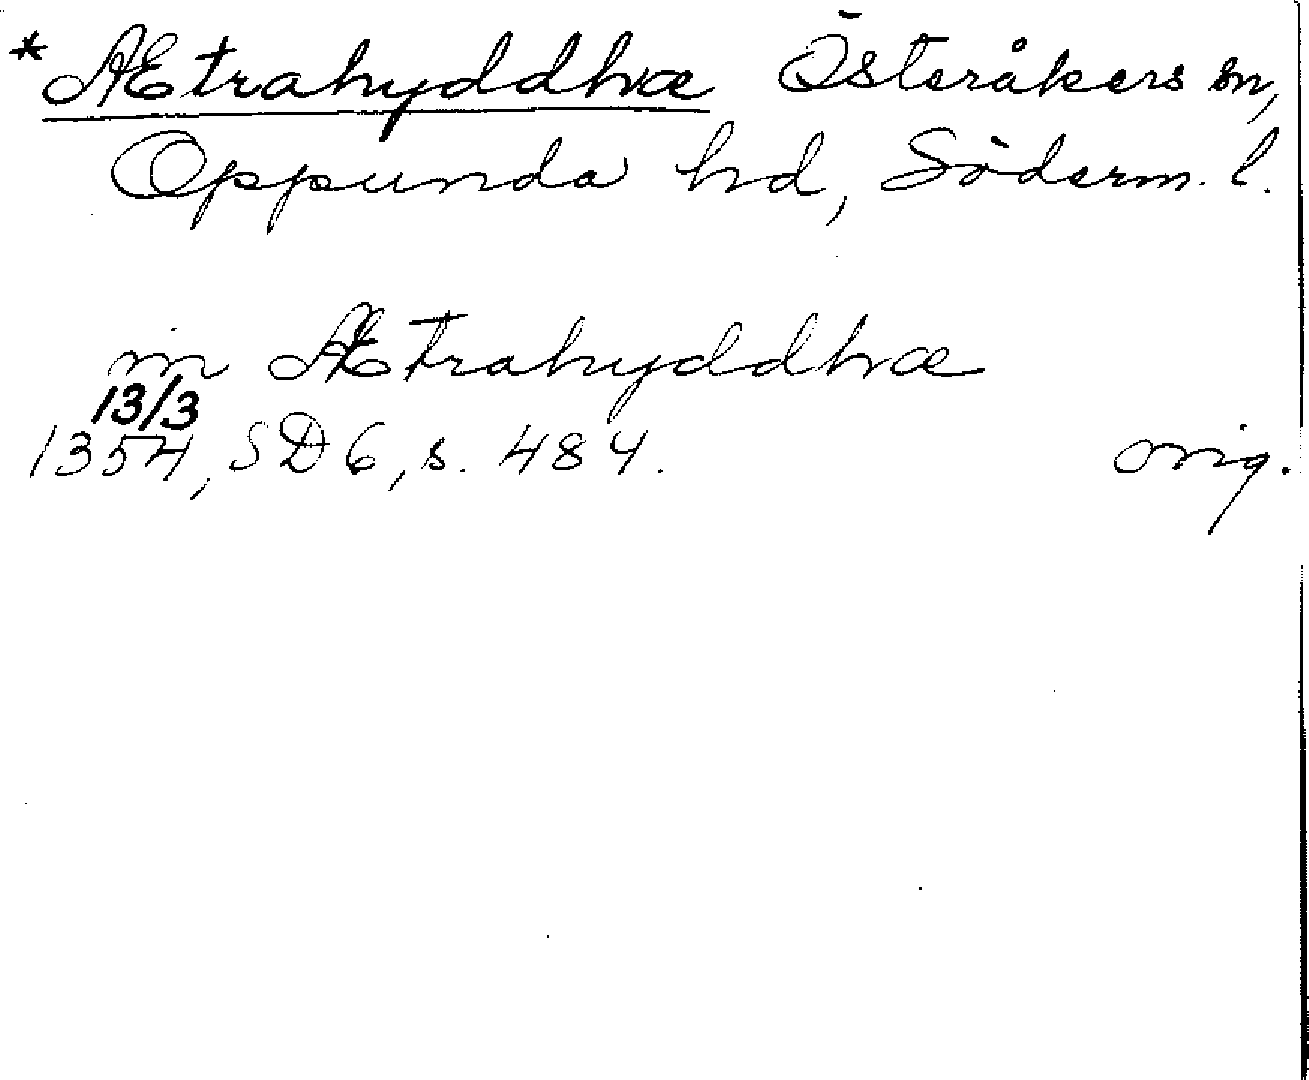 * Ætrahyddhæ Österåkers sn,
Oppunda hd, Söderm. l.
in Ætrahyddhæ
13/3
1354, SD 6, s. 484. orig.